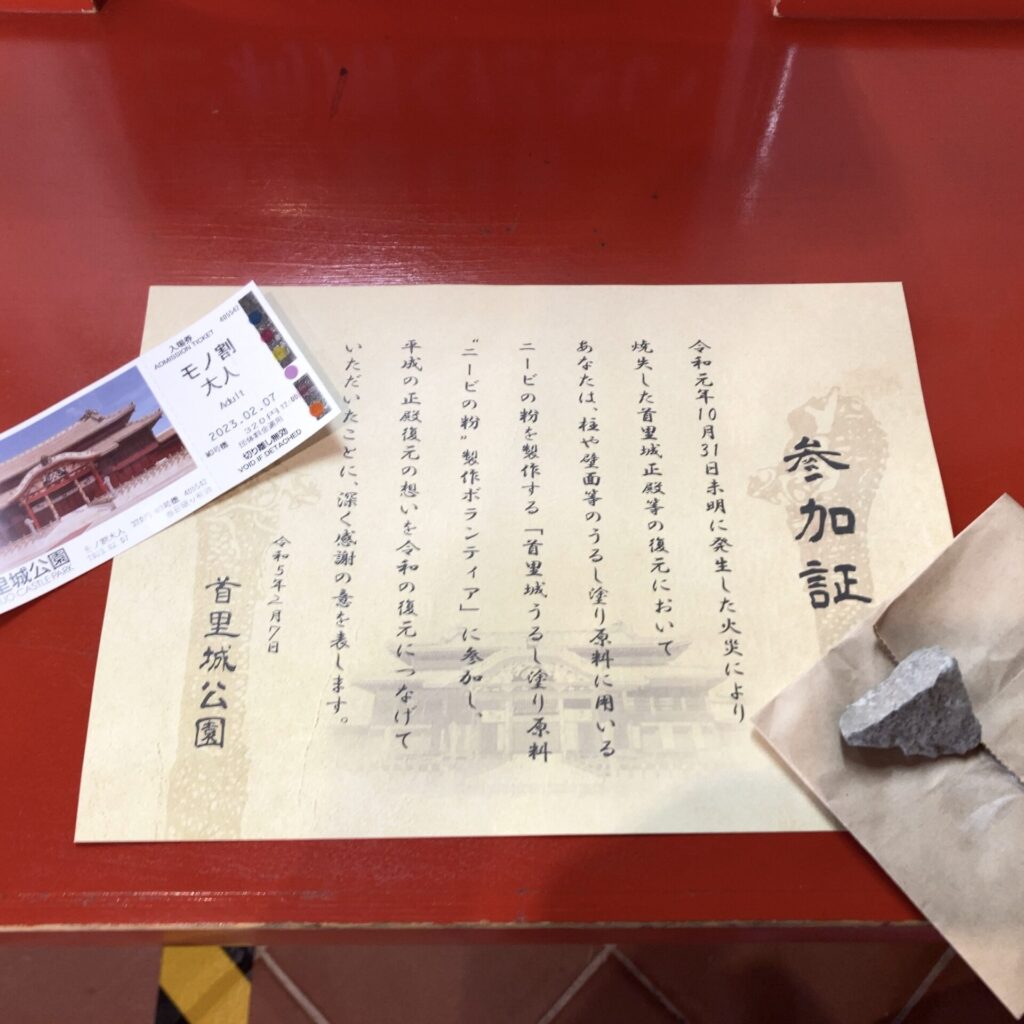 参加証
令和元年10月31日未明に発生した火災により
焼失した首里城正殿等の復元において
あなたは、柱や壁面等のうるし塗り原料に用いる
ニービの粉を製作する「首里城うるし塗り原料
“ニービの粉”製作ボランティア」に参加し、
平成の正殿復元の想いを令和の復元につなげて
いただいたことに、深く感謝の意を表します。
令和5年2月7日
首里城公園
入場券
ADMISSION TICKET
モノ割
大人
Adult
2023.02.07
320円
団体料金適用
切り離し無効
VOID IF DETACHED
405542
里城公園
CASTLE PARK
モノ割大人
405542